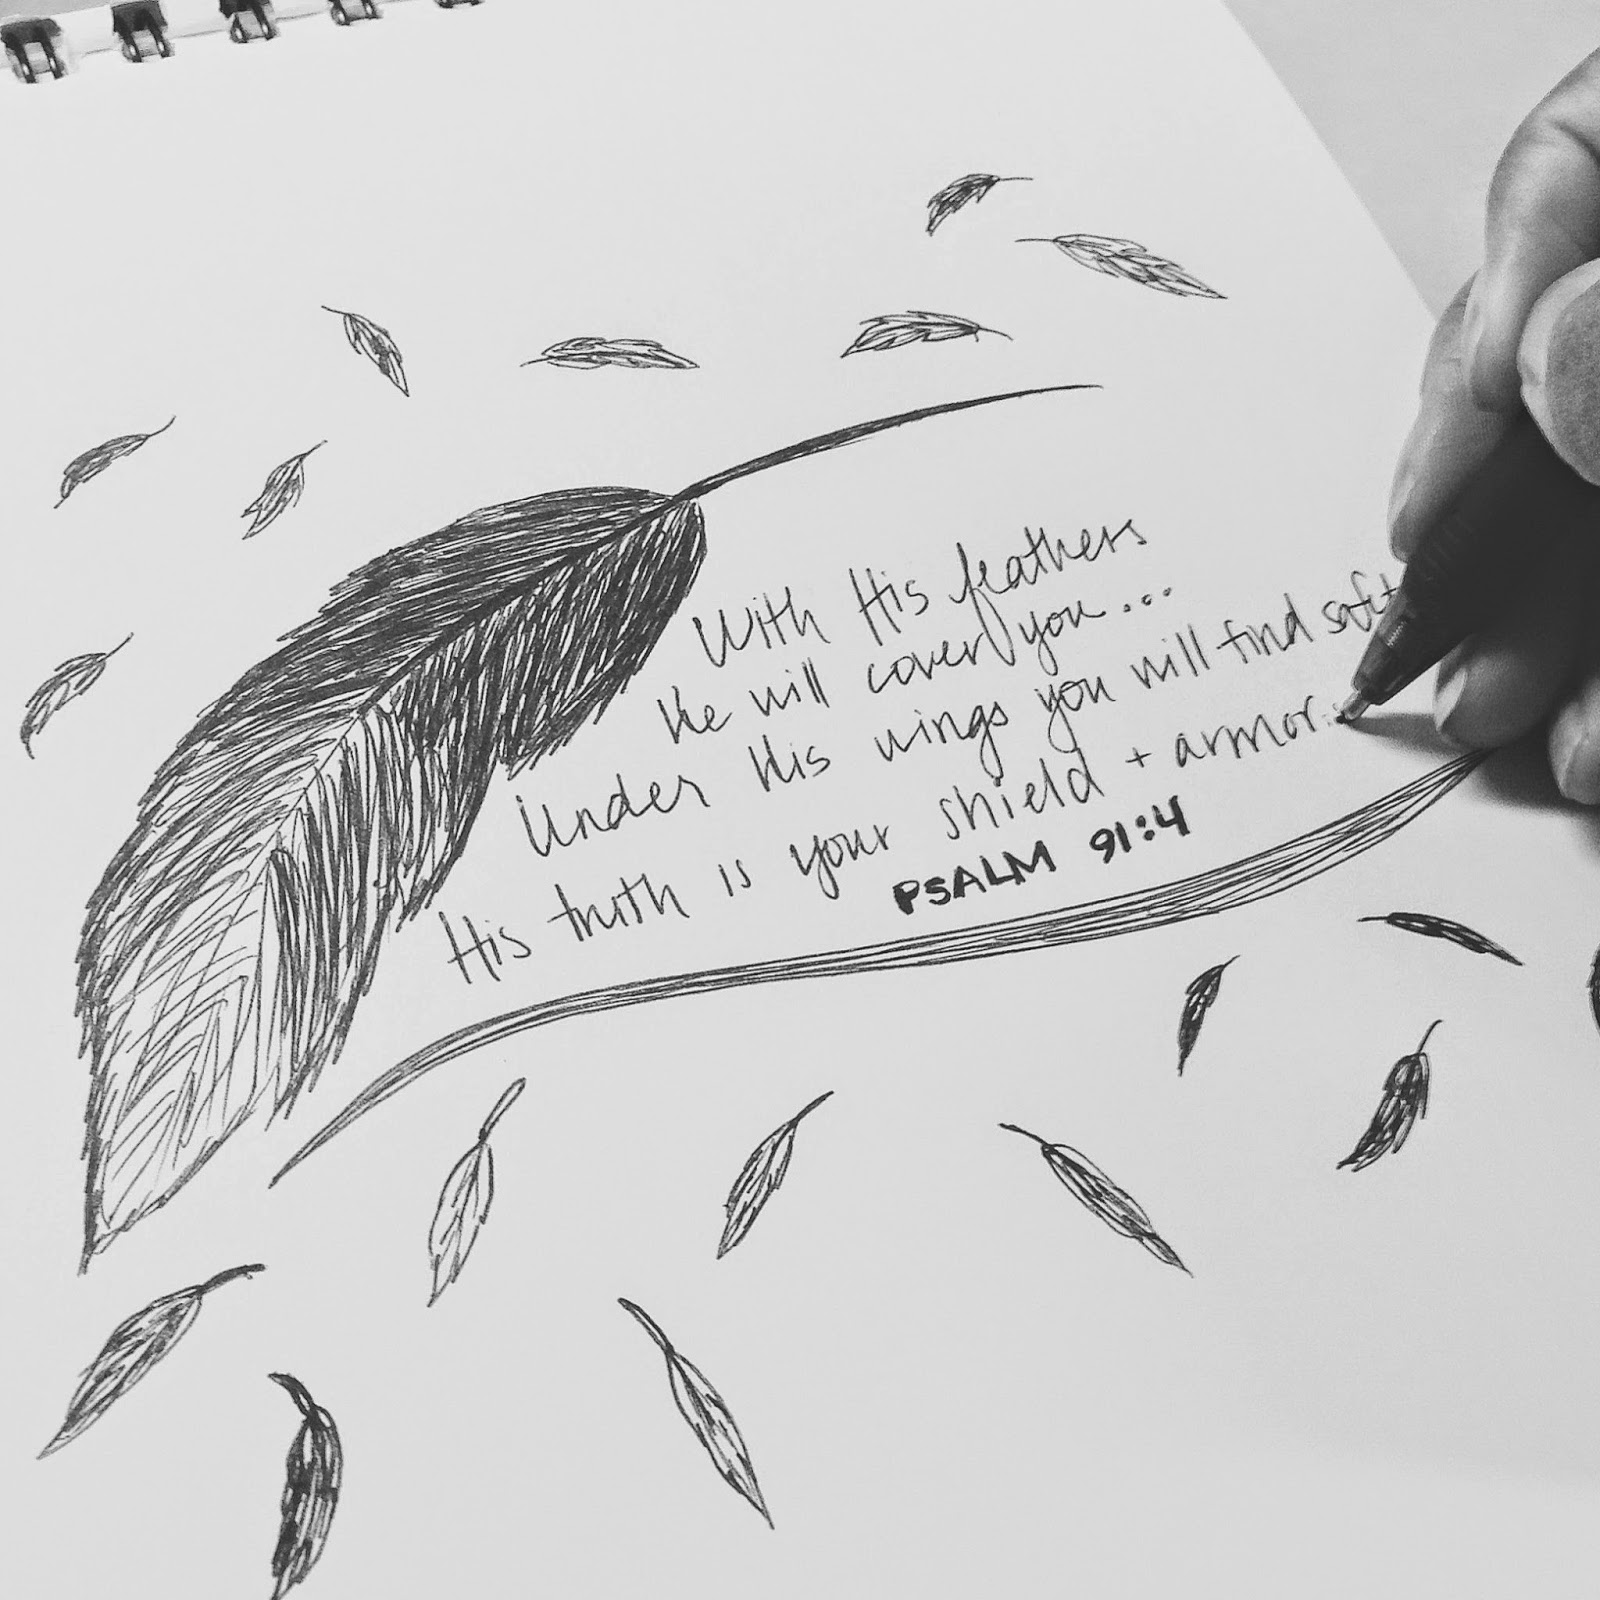 With His feathers
He will cover you...
Under His wings you will find
His truth is your shield + armor..
PSALM 91:4